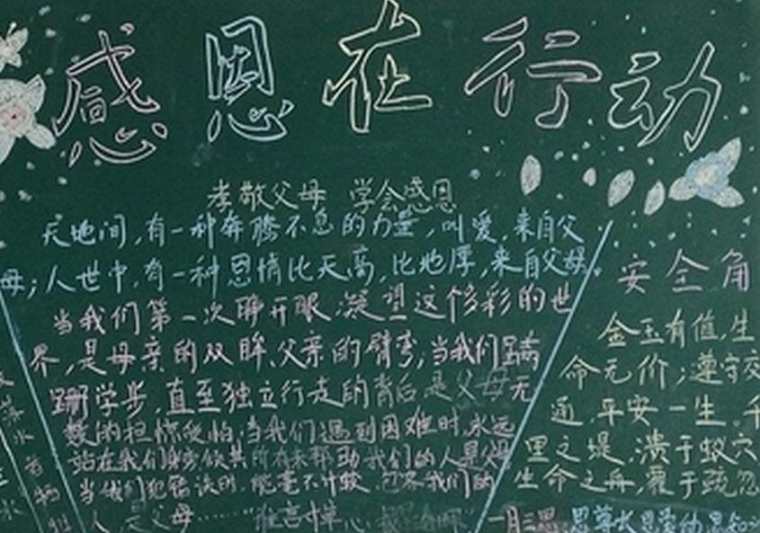 感恩在行动
孝敬父母 学会感恩
天地间,有一种奔腾不息的力量,叫爱,来自父
母;人世中,有一种恩情比天高,比地厚,来自父母。
当我们第一次睁开眼,凝望这个多彩的世
界,是母亲的双眸、父亲的臂弯;当我们蹒
跚学步,直至独立行走的背后是父母无
数的担惊受怕;当我们遇到困难时,永远
站在我们身旁倾其所有来帮助我们的人是父母
当我们犯错误时,能毫不计较,我们的
人是父母……
安全角
金玉有值,生
命无价;遵守交
通,平安一生。千
里之堤,溃于蚁穴
生命之舟,覆于疏忽